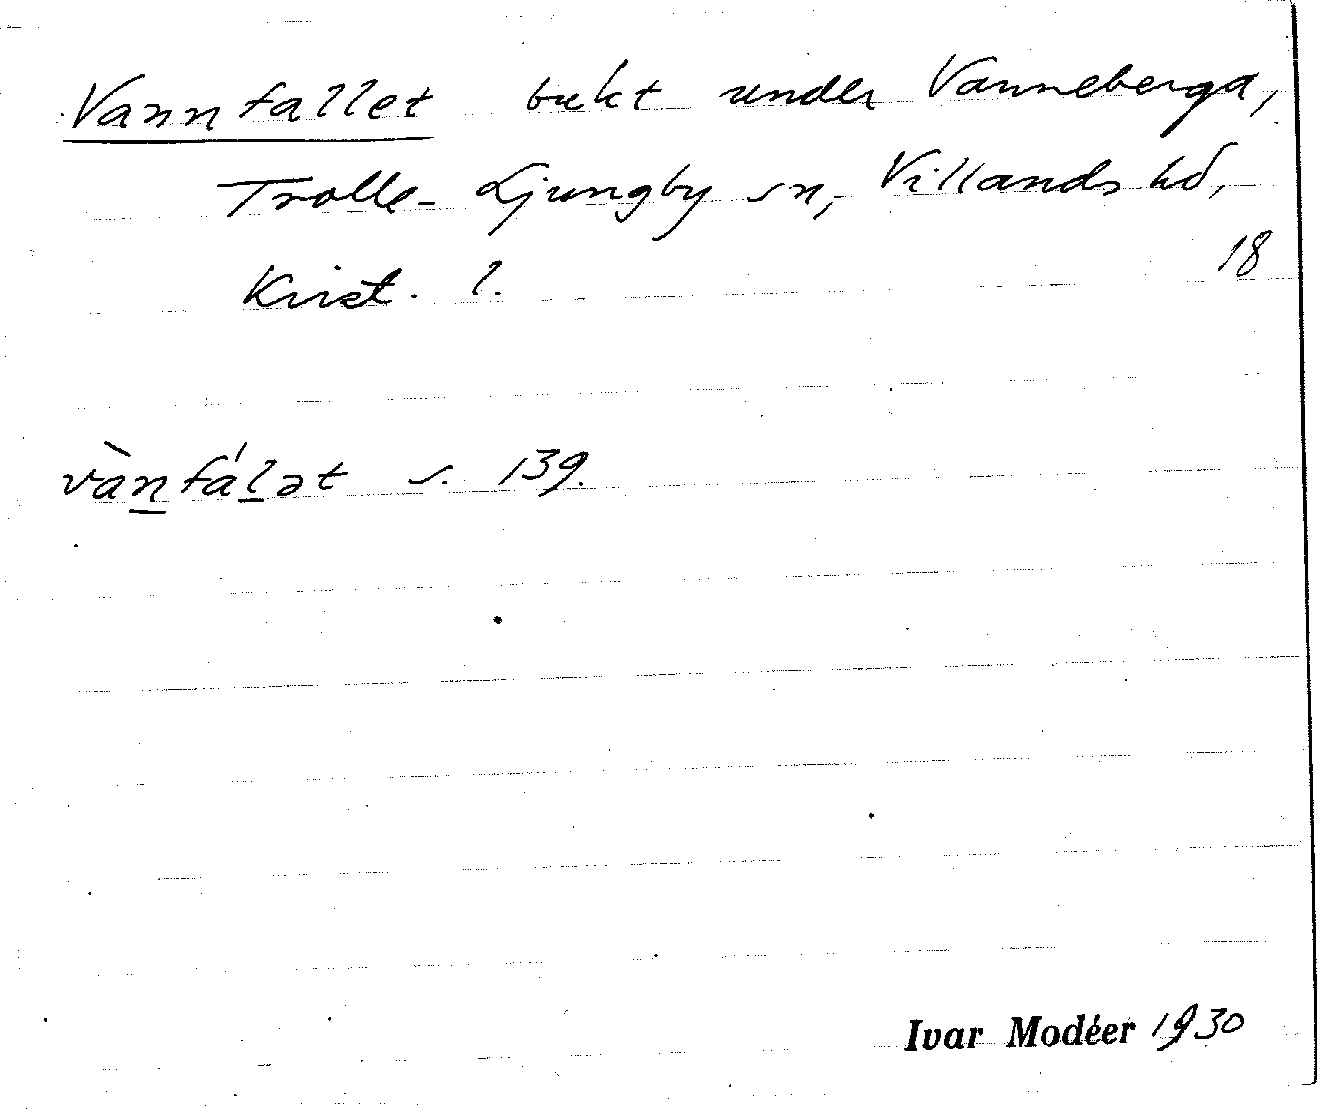 Vannfallet bukt under Vanneberga,
Trolle-Ljungby sn, Villands hd,
Krist. l. 18
vàn̲fál̲ət s. 139.
Ivar Modéer 1930